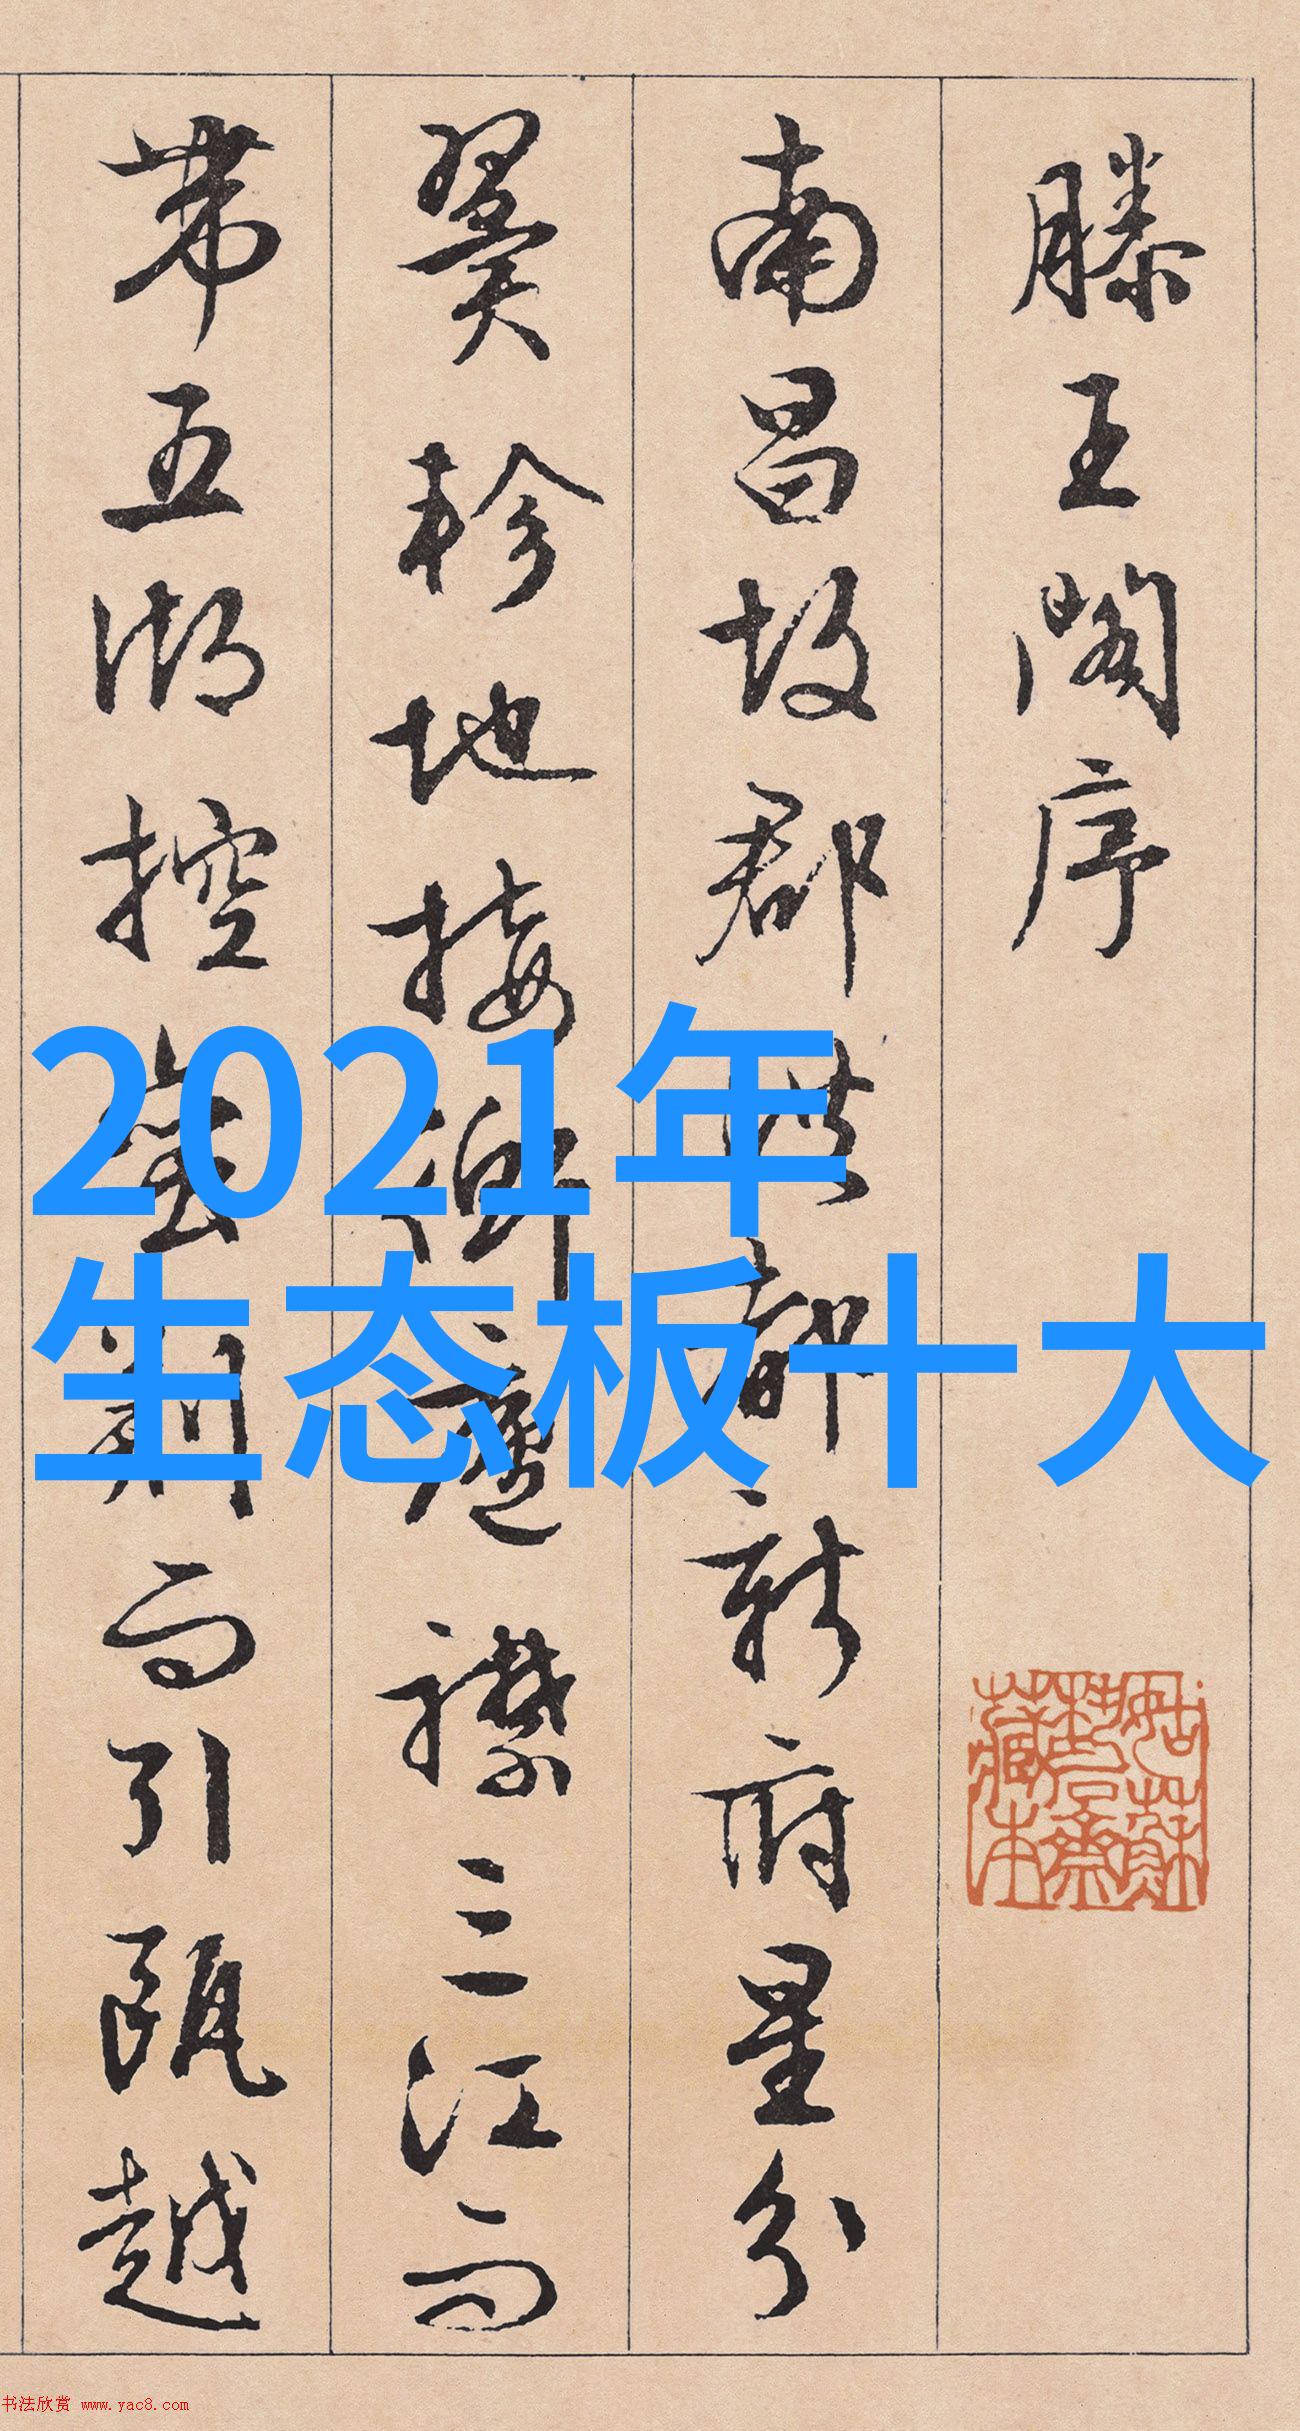 滕王阁序
南昌故郡洪都新府星分
翼轸地接衡庐襟三江而
带五湖控蛮荆而引瓯越
2021年
生态板十大
书法欣赏 www.yac8.com